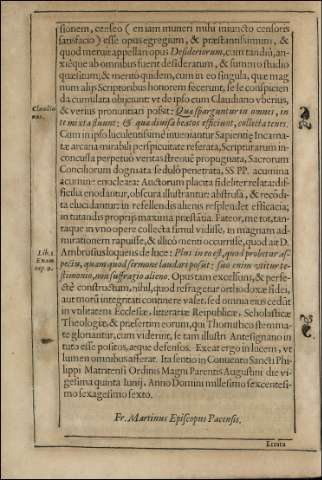 sionem, censeo (en iam muneri mihi iniuncto censoris
satisfacio) esse opus egregium, & præstantissimum, &
quod merito appellari opus Desideriorum, cum tandiu, an-
xièque ab omnibus fuerit desideratum, & summo studio
quæsitum; & meritò quidem, cum in eo singula, quæ mag
num alijs Scriptoribus honorem fecerunt, se se conspicien
da cumulata obijciunt: vt de ipso cum Claudiano vberius,
Claudianus.
& verius pronuntiari possit: Quæ sparguntur in omnes, in
te mixta fluunt; & quæ diuisa beatos efficiunt, collecta tenes.
Cum in ipso luculentissimè inueniantur Sapientiæ Incarna-
tæ arcana mirabili perspicuitate reserata, Scripturarum in
concussa perpetuò veritas strenuè propugnata, Sacrorum
Conciliorum dogmata sedulò penetrata, SS. PP. acumina
acumine enucleata: Auctorum placita fideliter relata: dif-
ficilia enodantur, obscura illustrantur: abstrusa, & recõdi-
ta elucidantur: in refellendis alienis resplendet efficacia;
in tutandis proprijs maxima præstãtia. Fateor, me tot, tan-
taque in vno opere collecta simul vidisse, in magnam ad-
mirationem rapuisse, & illicò menti occurrisse, quod ait D.
Lib. 1. Exam. cap. 9.
Ambrosius loquens de luce: Plus in eo est, quod probetur as-
pectu, quam quod sermone laudari possit: suo enim vtitur te-
stimonio, non suffragio alieno. Opus tam excellens, & perfe-
ctè constructum, nihil, quod refragetur orthodoxæ fidei,
aut morũ integritati continere valet, sed omnia eius cedũt
in vtilitatem Ecclesiæ, literariæ Reipublicæ, Scholasticæ
Theologiæ, & præsertim eorum, qui Thomistico stemma-
te gloriantur, cum viderint, se tam illustri Antesignano in
tuto esse positos, æque defensos. Exeat ergo in lucem, vt
lumen omnibus afferat. Ita sentio in Conuentu Sancti Phi-
lippi Matritensi Ordinis Magni Parentis Augustini die vi-
gesima quinta Iunij. Anno Domini millesimo sexcentesi-
mo sexagesimo sexto.
Fr. Martinus Episcopus Pacensis.
Errata